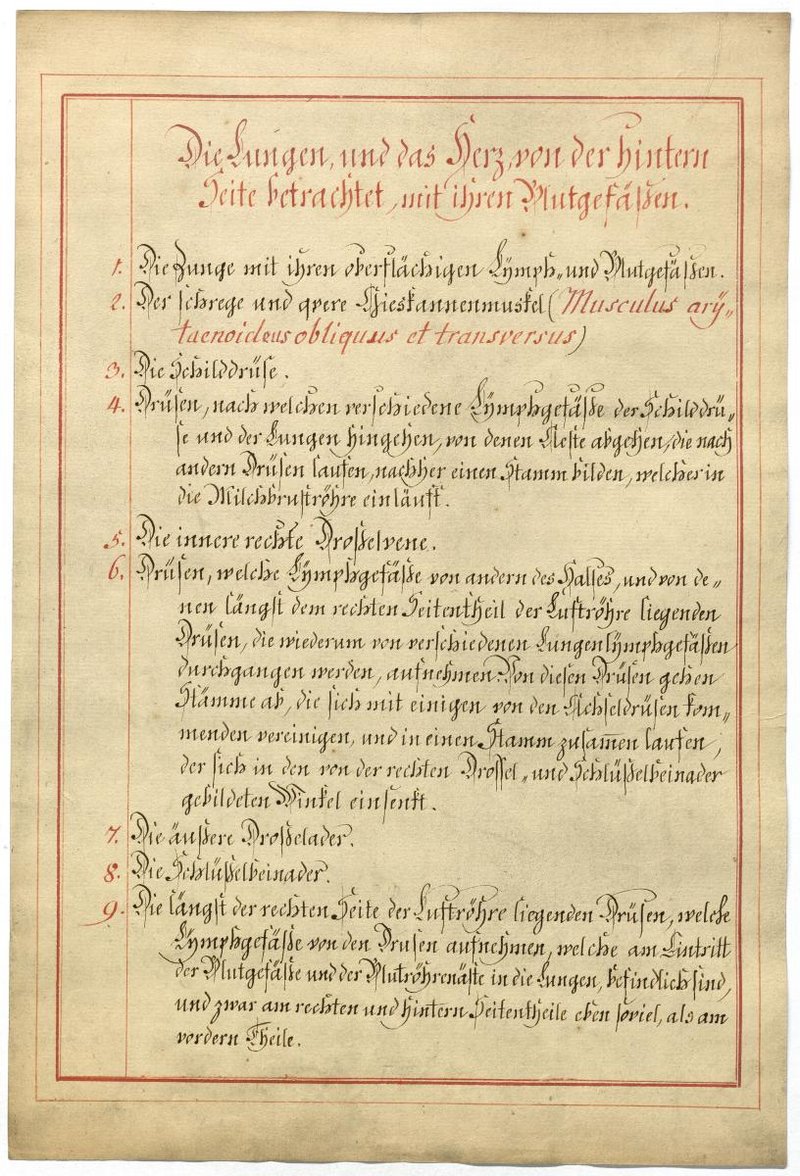 Die Lungen, und das Herz, von der hintern
Seite betrachtet, mit ihren Blutgefäßen.
1. Die Zunge mit ihren oberflächigen Lÿmph- und Blutgefäßen.
2. Der schrege und qvere Gieskannenmuskel (Musculus arÿ-
taenoideus obliquus et transversus)
3. Die Schilddrüse.
4. Drüsen, nach welchen verschiedene Lÿmphgefäße der Schilddrü-
se und der Lungen hingehen, von denen Aeste abgehen, die nach
andern Drüsen laufen, nachher einen Stamm bilden, welcher in
die Milchbruströhre einläuft.
5. Die innere rechte Droßelvene.
6. Drüsen, welche Lÿmphgefäße von andern des Halses, und von de-
nen längst dem rechten Seitentheil der Luftröhre liegenden
Drüsen, die wiederum von verschiedenen Lungenlÿmphgefäßen
durchgangen werden, aufnehmen. Von diesen Drüsen gehen
Stämme ab, die sich mit einigen von den Achseldrüsen kom-
menden vereinigen, und in einen Stamm zusam̅en laufen,
der sich in den von der rechten Drossel- und Schlüßelbeinader
gebildeten Winkel einsenkt.
7. Die äußere Droßelader.
8. Die Schlüßelbeinader.
9. Die längst der rechten Seite der Luftröhre liegenden Drüsen, welche
Lÿmphgefäße von den Drusen aufnehmen, welche am Eintritt
der Blutgefäße und der Blutröhrenäste in die Lungen, befindlich sind,
und zwar am rechten und hintern Seitentheile eben soviel, als am
vordern Theile.